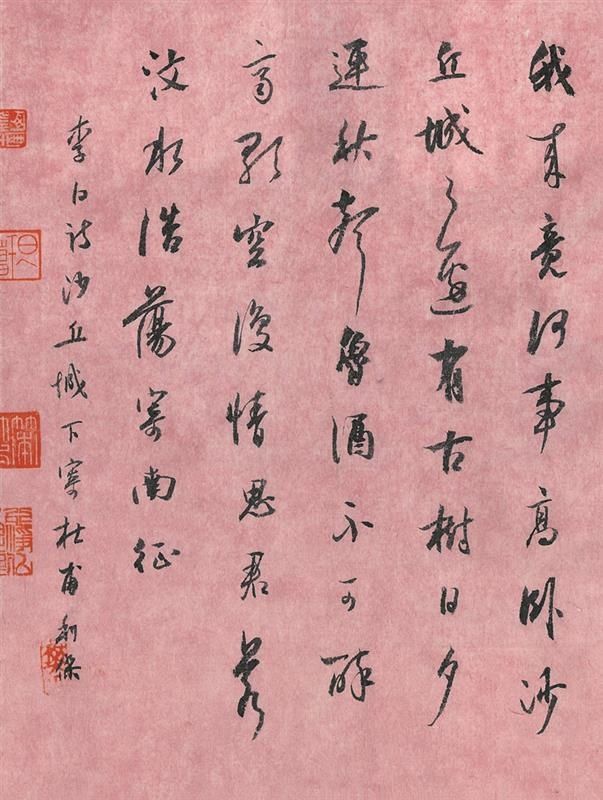 我來竟何事高卧沙
丘城々邊有古樹日夕
連秋聲魯酒不可醉
齊歌空復情思君若
汶水浩蕩寄南征
李白詩沙丘城下寄杜甫 利保